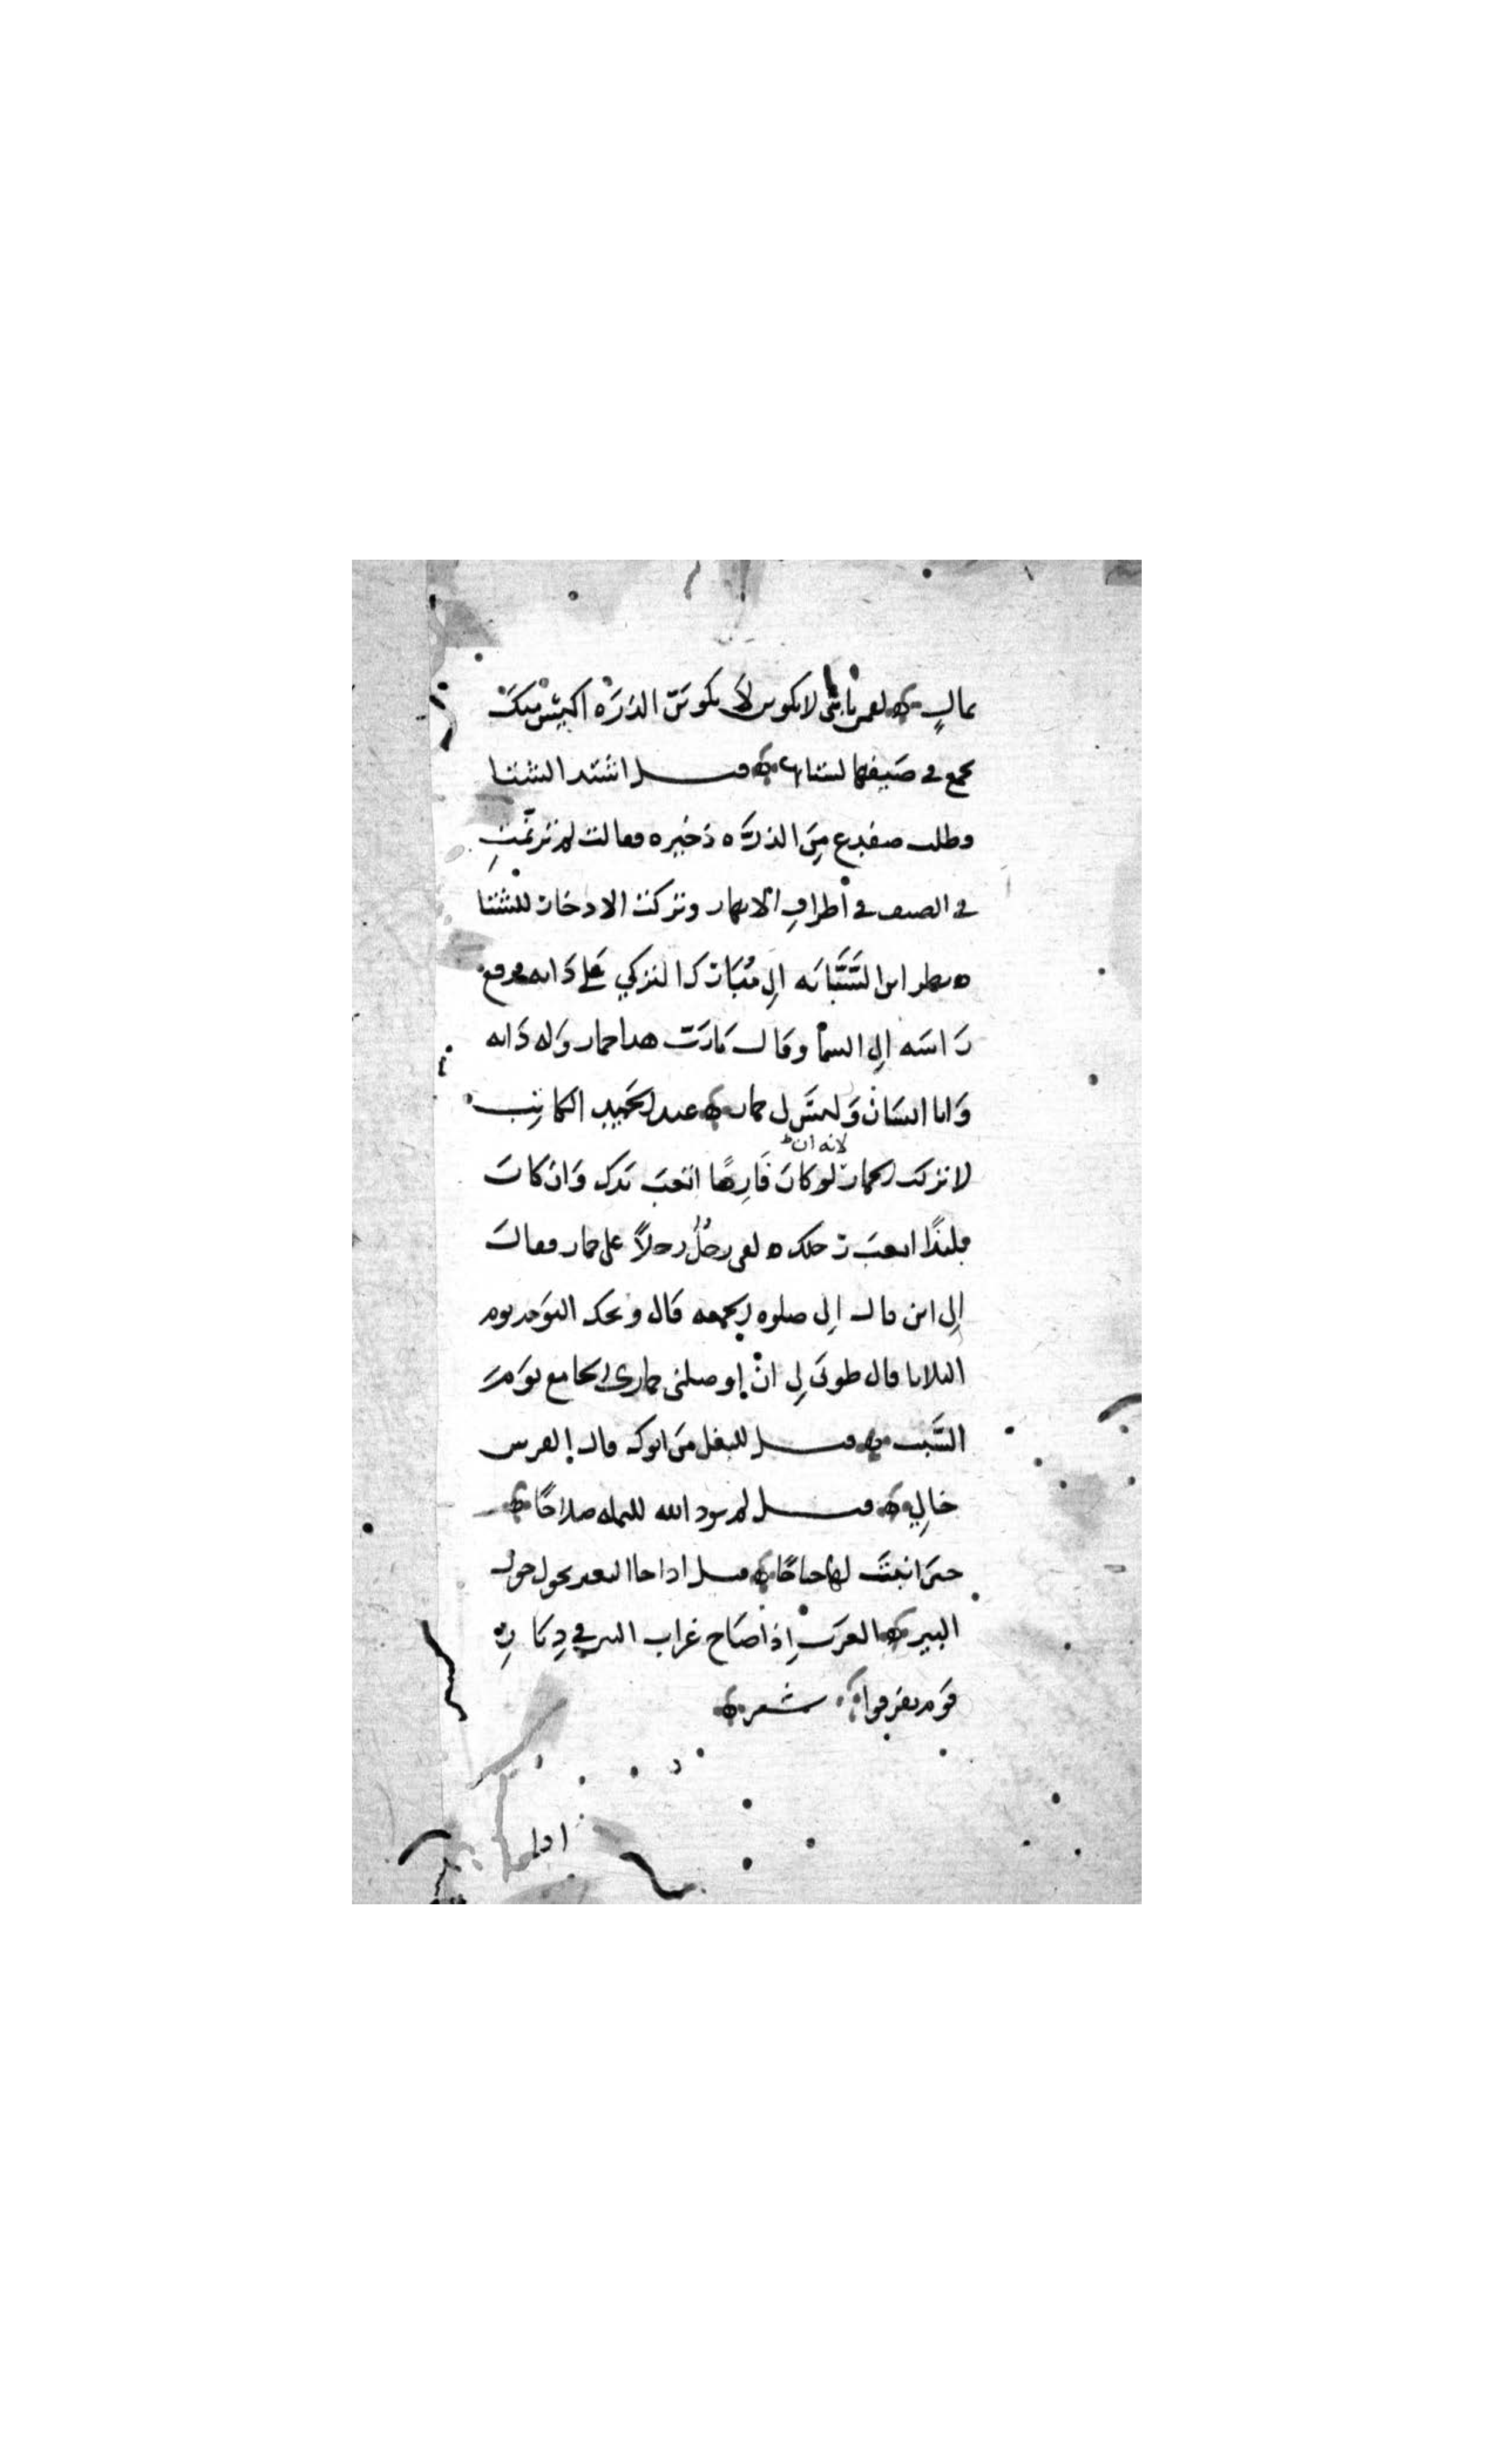 بمالٍ لقمن يا بني لا يكونن يكونن الذره اكيس منك
تجمع في صيفها لشتائها قيل اشتد الشتا
وطلب ضفدع من الذره ذخيره فقالت لم ترنمت
في الصيف في أطراف الانهار وتركت الادخار للشتا
نظر ابن الشبابه الى مبارك التركي على دابه فرفع
راسه الى السما وقال يارب هذا حمار وله دابه
وانا انسان وليس لي حمار عبد الحميد الكاتب
لا تركب الحمار لانه ان كان فارها اتعب يدك وان كان
بليدًا اتعب رجلك لقي رجل رجلاً على حمار فقال
الى اين قال الى صلوه الجمعه قال ويحك اليوم يوم
الثلاثا قال طوبى لي ان اوصلني حماري الجامع يوم
السبت قيل للبغل من ابوك قال الفرس
خالي قيل لم يرد الله للنمله صلاحًا
حتى انبتت لها جناحًا قيل اذا جا البعير يحول حول
البير العرب اذا صاح غراب البين في ديار
قوم تفرقوا شعر
اذا